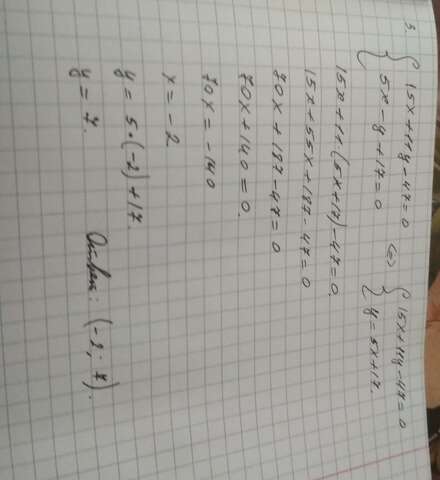 5. { 15x+11y-47=0 (=) { 15x+11y-47=0
{ 5x-y+17=0 { y=5x+17.
15x+11·(5x+17)-47=0.
15x+55x+187-47=0
70x+187-47=0
70x+140=0.
70x=-140
x=-2
y=5·(-2)+17.
y=7.
Ответ: (-2; 7).